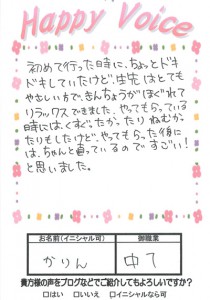 Happy Voice
初めて行った時に、ちょっとドキ
ドキしていたけど、先生はとても
やさしい方で、きんちょうがほぐれて
リラックスできました。やってもらっている
時には、くすぐったかったり ねむか
ったりもしたけど、やってもらった後に
は、ちゃんと直っているので すごい!
と思いました。
お名前(イニシャル可)
御職業
かりん
中1
貴方様の声をブログなどでご紹介してもよろしいですか?
□はい □いいえ □イニシャルなら可